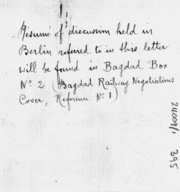 Resumé of discussion held in
Berlin referred to in this letter
will be found in Bagdad Box
Nº 2 (Bagdad Railway Negotiations
Cover, Reference Nº 1)
24009/1 395